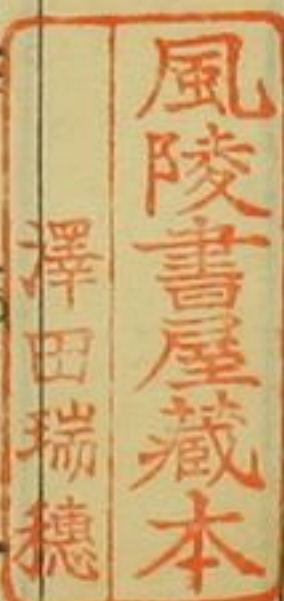 風陵書屋藏本
澤田瑞穗